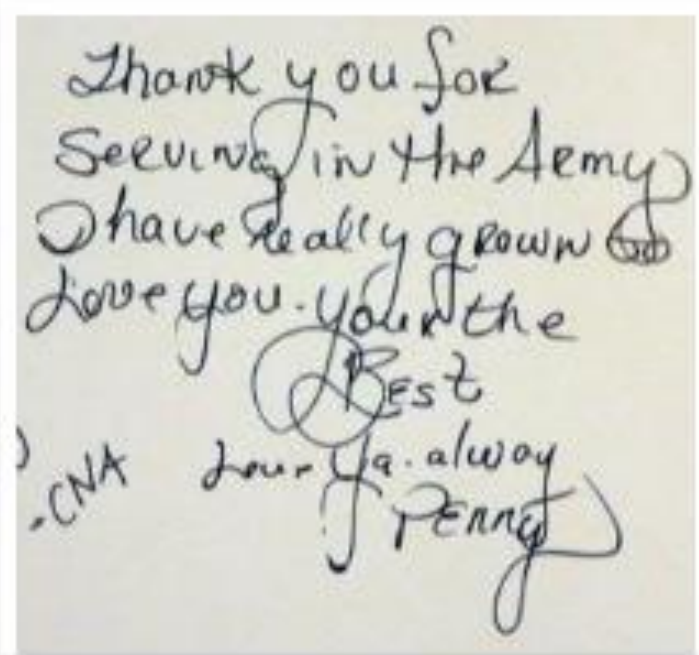 Thank you for
Serving in the Army
I have really grown to
Love you. your the
Best
Love Ya. alway
-CNA
Penny